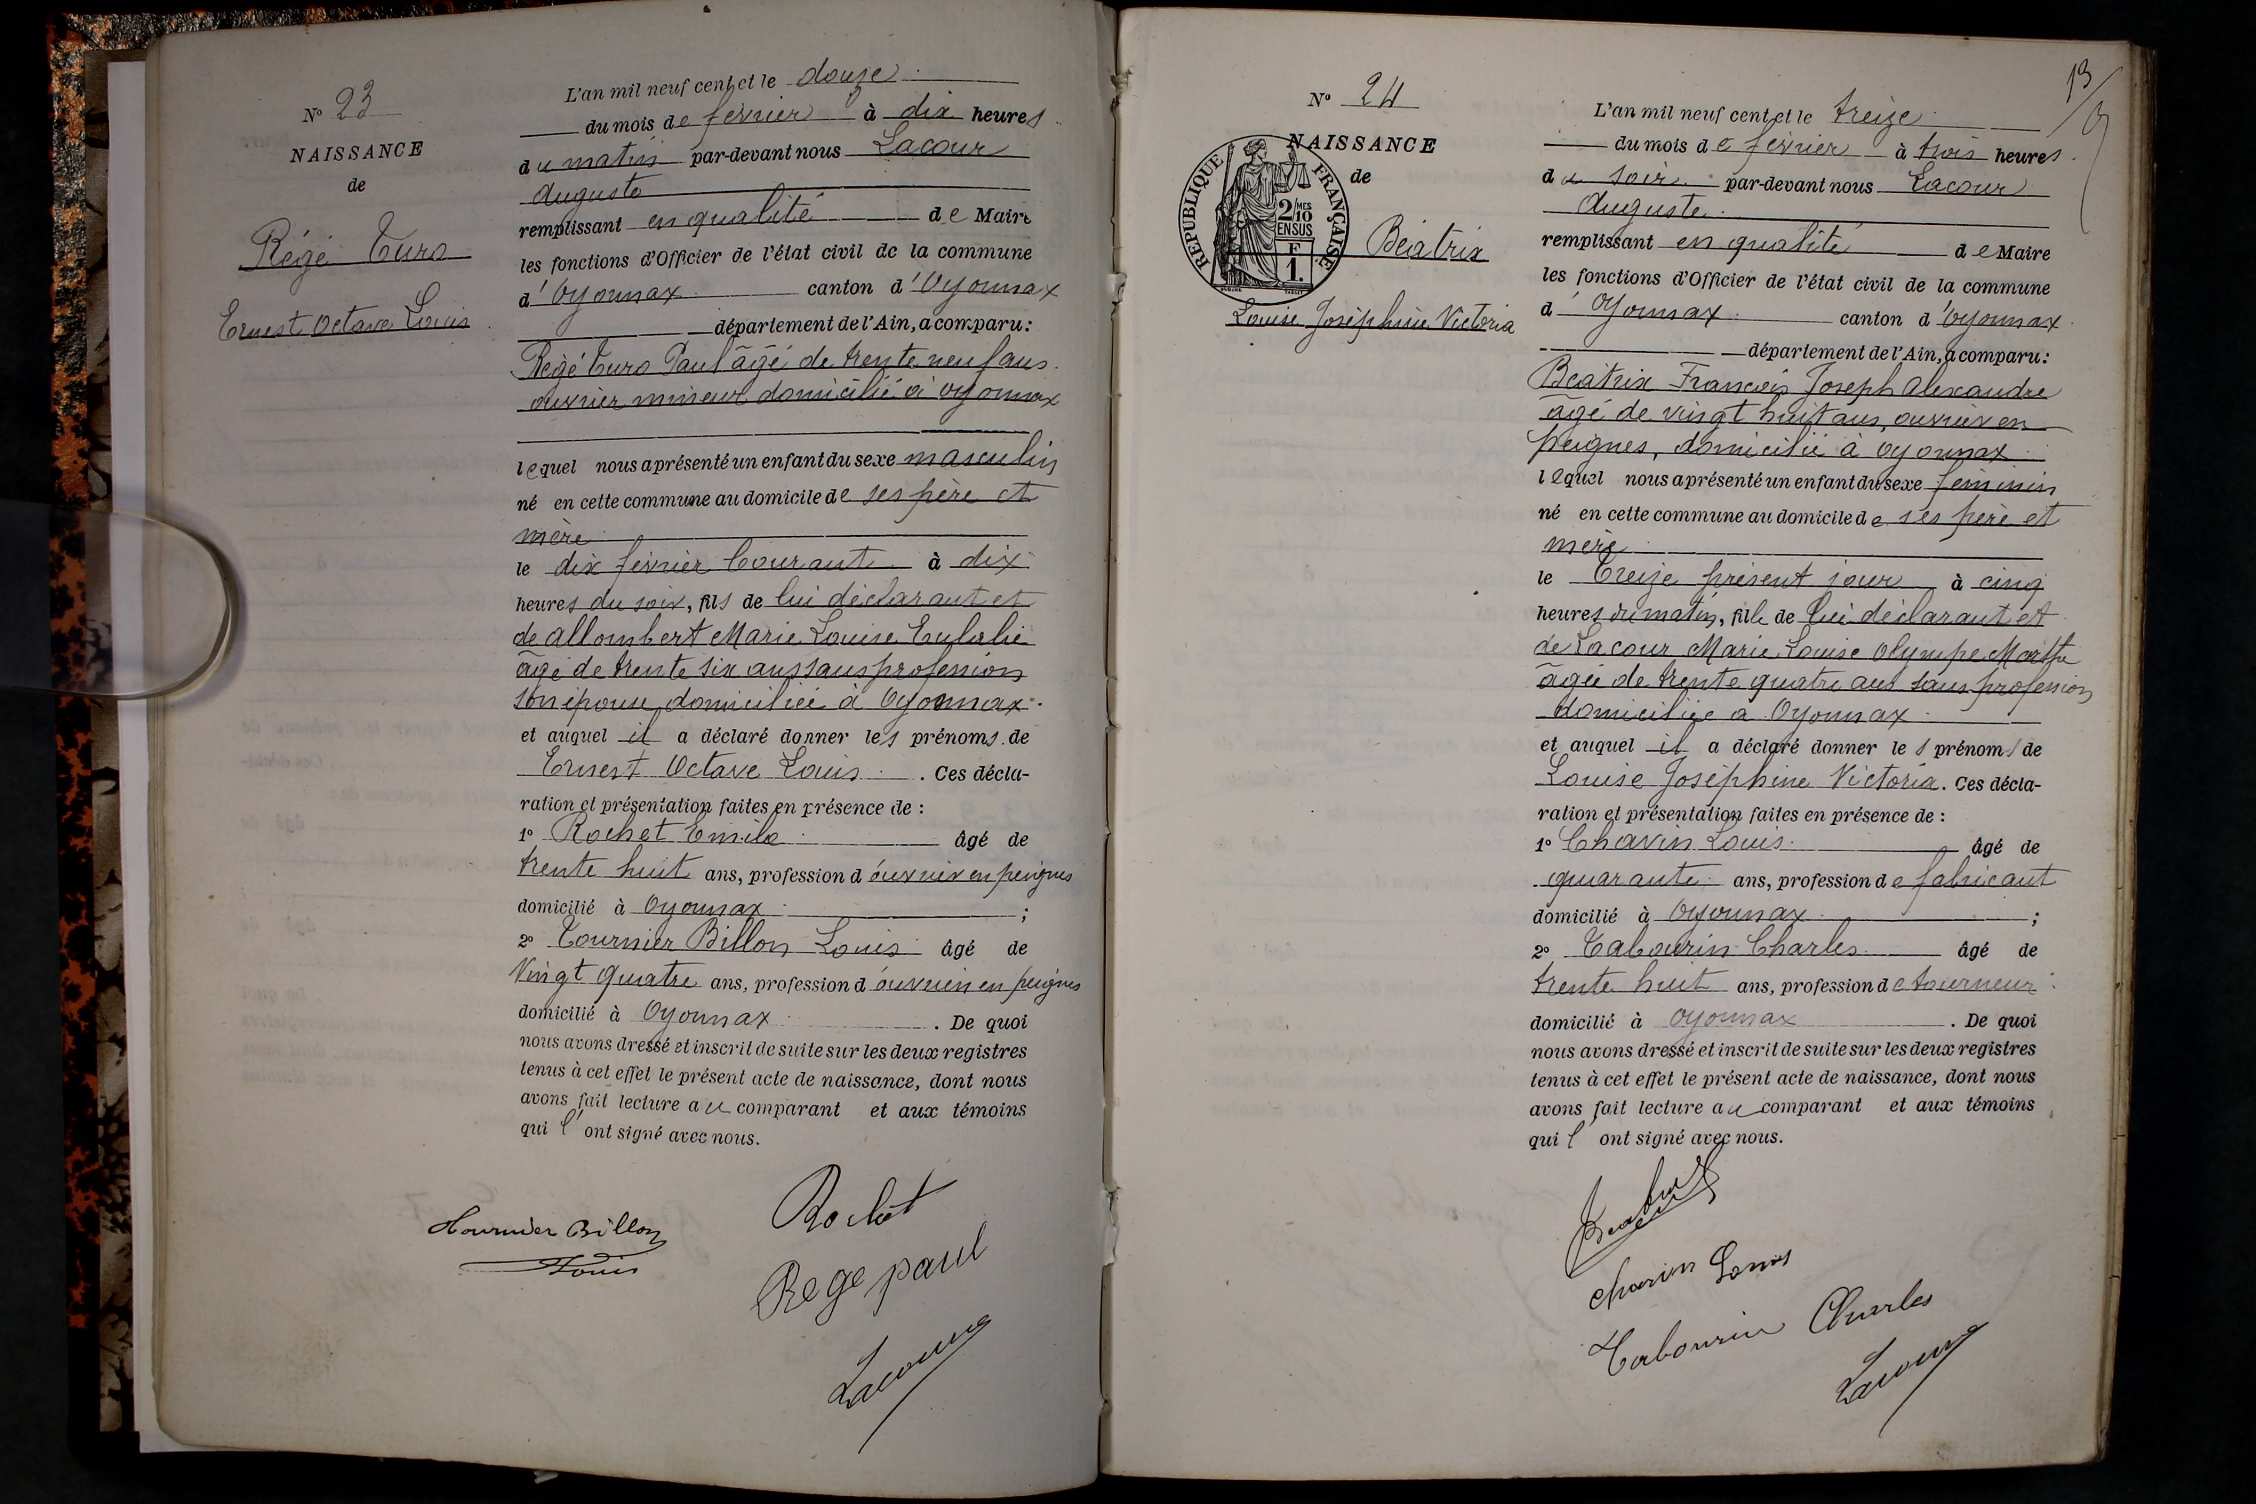 N° 23
NAISSANCE
de
Régé Turo
Ernest Octave Louis
L'an mil neuf cent et le douze
du mois de février à dix heures
du matin par-devant nous Lacour
Auguste
remplissant en qualité de Maire
les fonctions d'Officier de l'état civil de la commune
d'Oyonnax canton d'Oyonnax
département de l'Ain, a comparu:
Régé Turo Paul âgé de trente neuf ans
ouvrier mineur domicilié à Oyonnax
lequel nous a présenté un enfant du sexe masculin
né en cette commune au domicile de ses père et
mère
le dix février Courant à dix
heures du soir, fils de lui déclarant et
de Allombert Marie Louise Eulalie
âgé de trente six ans sans profession
son épouse, domiciliée à Oyonnax.
et auquel il a déclaré donner les prénoms de
Ernest Octave Louis. Ces décla-
ration et présentation faites en présence de :
1° Rochet Emile âgé de
trente huit ans, profession d'ouvrier en peignes
domicilié à Oyonnax ;
2° Tournier Billon Louis âgé de
Vingt quatre ans, profession d'ouvrier en peignes
domicilié à Oyonnax. De quoi
nous avons dressé et inscrit de suite sur les deux registres
tenus à cet effet le présent acte de naissance, dont nous
avons fait lecture au comparant et aux témoins
qui l'ont signé avec nous.
Tournier Billon
Louis
Rochet
Rege paul
Lacour
13
N° 24
NAISSANCE
de
RÉPUBLIQUE FRANÇAISE
2/10 MES
EN SUS
F
1.
Béatrix
Louise Joséphine Victoria
L'an mil neuf cent et le treize
du mois de février à trois heures
du soir par-devant nous Lacour
Auguste
remplissant en qualité de Maire
les fonctions d'Officier de l'état civil de la commune
d'Oyonnax canton d'Oyonnax
département de l'Ain, a comparu:
Béatrix François Joseph Alexandre
âgé de vingt huit ans, ouvrier en
peignes, domicilié à Oyonnax
lequel nous a présenté un enfant du sexe féminin
né en cette commune au domicile de ses père et
mère
le Treize présent jour à cinq
heures du matin, fille de lui déclarant et
de Lacour Marie Louise Olympe Marthe
âgée de trente quatre ans sans profession
domiciliée à Oyonnax
et auquel il a déclaré donner les prénoms de
Louise Joséphine Victoria. Ces décla-
ration et présentation faites en présence de :
1° Chavin Louis âgé de
quarante ans, profession de fabricant
domicilié à Oyonnax ;
2° Tabourin Charles âgé de
trente huit ans, profession de tourneur
domicilié à Oyonnax. De quoi
nous avons dressé et inscrit de suite sur les deux registres
tenus à cet effet le présent acte de naissance, dont nous
avons fait lecture au comparant et aux témoins
qui l'ont signé avec nous.
Chavin Louis
Tabourin Charles
Lacour